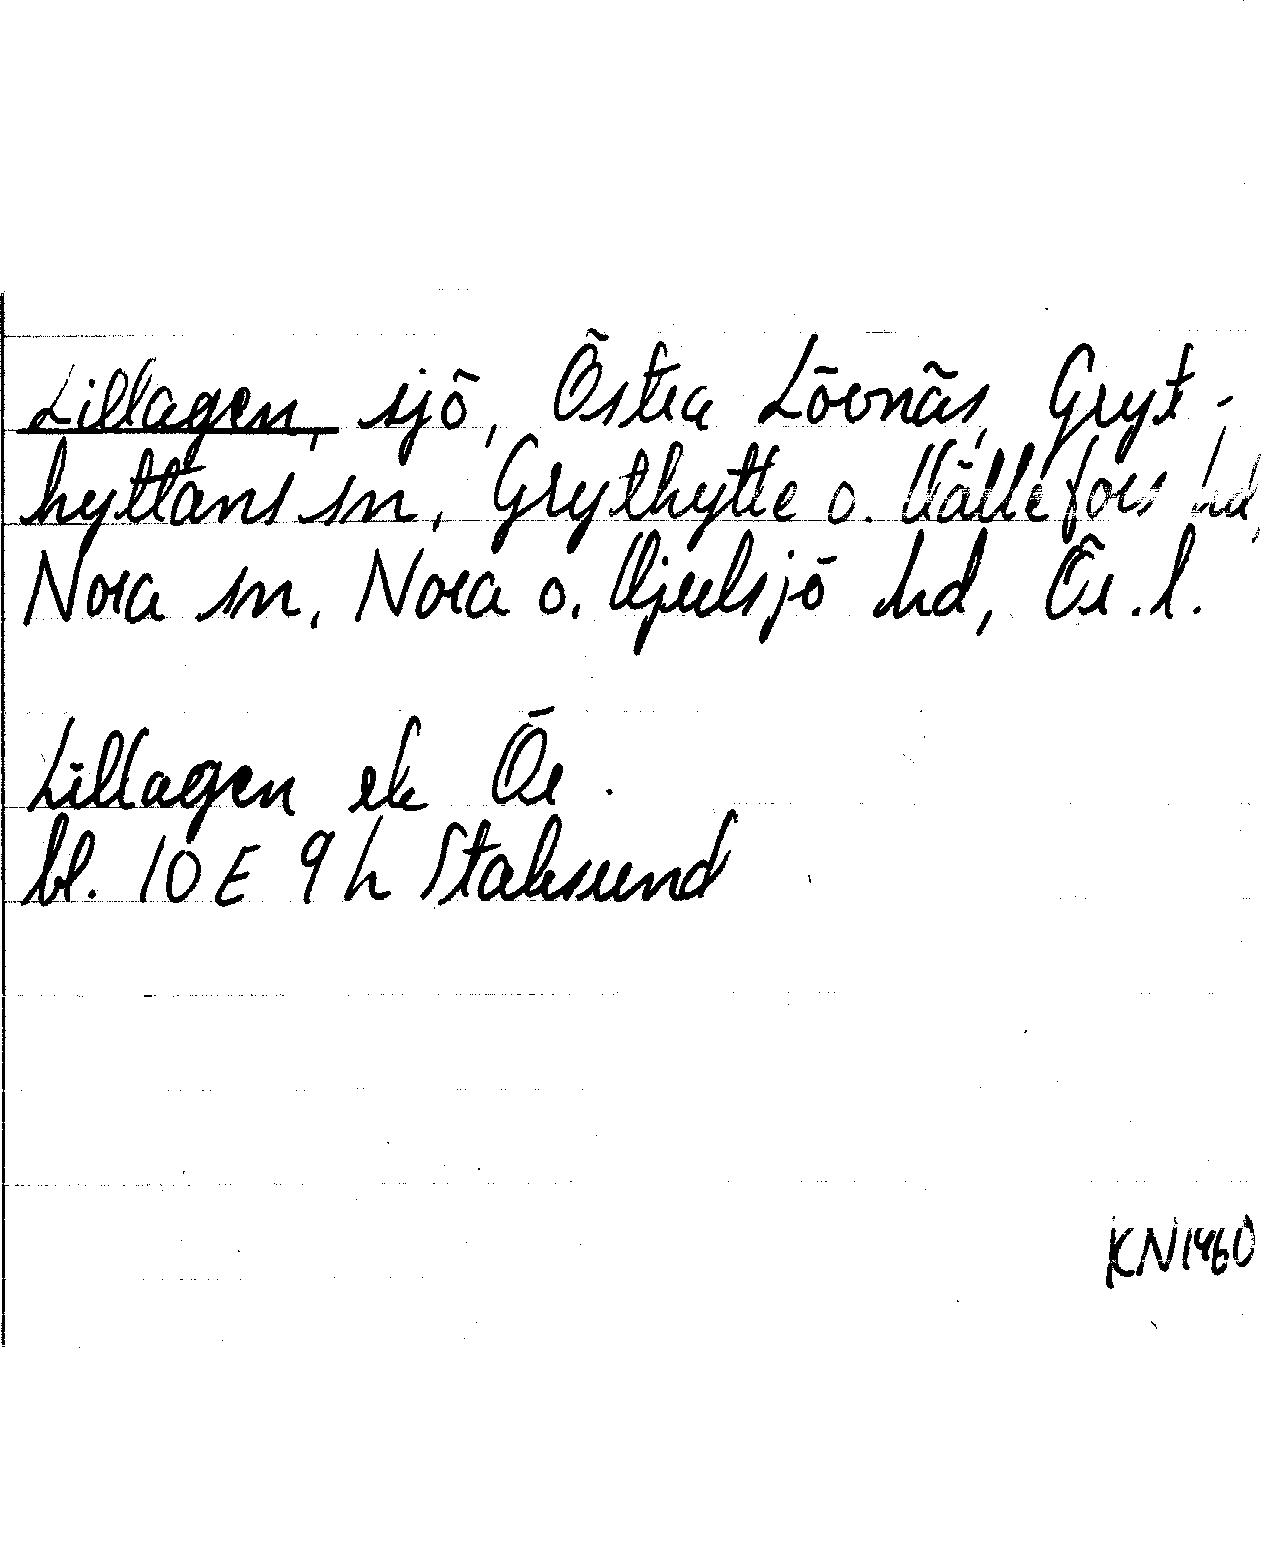 Lillagen, sjö, Östra Lövnäs, Gryt-
hyttans sn, Grythytte o. Hällefors hd,
Nora sn, Nora o. Hjulsjö hd, Ör. l.
Lillagen ek Ör.
bl. 10 E 9 h Staksund
KN1460